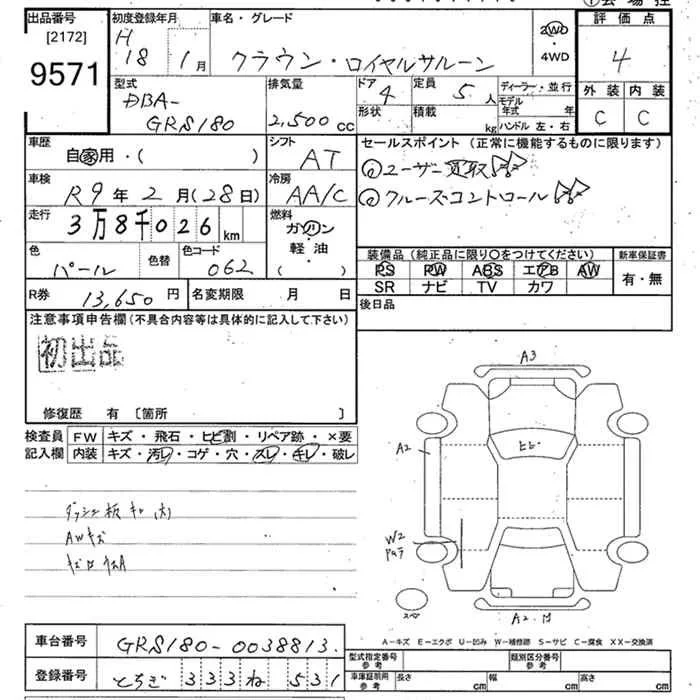 出品番号 初度登録年月 車名・グレード 2WD・4WD 評価点
[2172] H 18年 1月 クラウン・ロイヤルサルーン 4
9571
外装 内装
C C
型式 排気量 ドア 定員 ディーラー・並行
DBA-GRS180 2,500cc 4 5人
形状 積載 kg モデル年式 年 ハンドル 左・右
車歴 自家用・( ) シフト AT セールスポイント (正常に機能するものに限ります)
車検 R9年 2月(28日) 冷房 AA/C ユーザー買取
走行 3万8千026km 燃料 ガソリン 軽・油 ( ) クルーズコントロール
色 パール 色替 色コード 062
装備品 (純正品に限り〇をつけてください) 新車保証書
PS PW ABS エアB AW 有・無
SR ナビ TV カワ
R券 13,650円 名変期限 月 日 後日品
注意事項申告欄 (不具合内容等は具体的に記入して下さい)
初出品
修復歴 有 〔箇所 〕
検査員記入欄 FW キズ・飛石・ヒビ割・リペア跡・×要
内装 キズ・汚レ・コゲ・穴・スレ・キレ・破レ
AWキズ
A3
ヒビ
A2
W2
スペ
A2
A-キズ E-エクボ U-凹み W-補修跡 S-サビ C-腐食 XX-交換済
車台番号 GRS180-0038813.
登録番号 とちぎ 333 ね 531
型式指定番号 参考 類別区分番号 参考
車庫証明用 参考 長さ cm 幅 cm 高さ cm